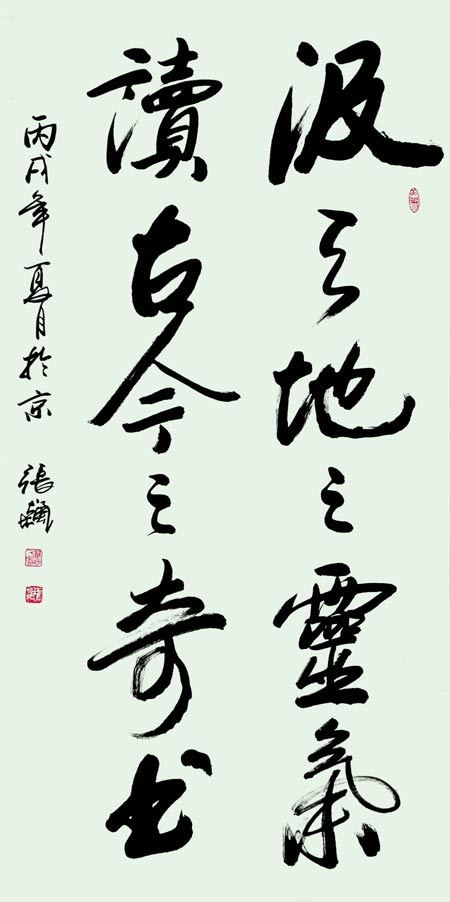 汲天地之靈氣
讀古今之奇书
丙戌年夏月於京 張